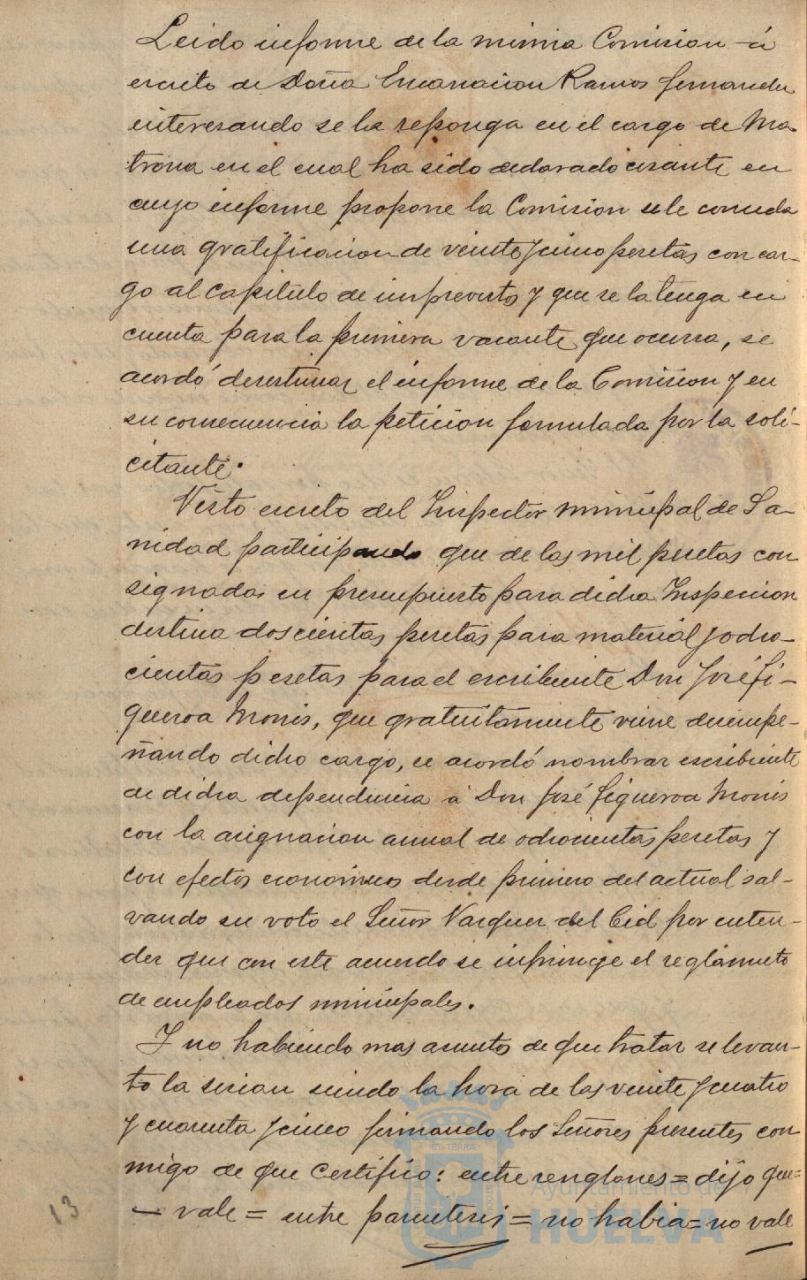 Leido informe de la misma Comision á
escrito de Doña Encarnacion Ramos Fernandez
interesando se la reponga en el cargo de Ma-
trona en el cual ha sido declarado cesante en
cuyo informe propone la Comision se le conceda
una gratificacion de veinte y cinco pesetas con car-
go al capitulo de imprevistos y que se la tenga en
cuenta para la primera vacante que ocurra, se
acordó desestimar el informe de la Comision y en
su consecuencia la peticion formulada por la soli-
citante.
Visto escrito del Inspector municipal de Sa-
nidad participando que de las mil pesetas con
signadas en presupuesto para dicha Inspeccion
destina doscientas pesetas para material y ocho-
cientas pesetas para el escribiente Don José Fi-
gueroa Monis, que gratuitamente viene desempe-
ñando dicho cargo, se acordó nombrar escribiente
de dicha dependencia á Don José Figueroa Monis
con la asignacion anual de ochocientas pesetas y
con efectos económicos desde primero del actual sal-
vando su voto el Señor Vazquez del Cid por enten-
der que con este acuerdo se infringe el reglamento
de empleados municipales.
Y no habiendo mas asuntos de que tratar se levan-
to la sesion siendo la hora de las veinte y cuatro
y cuarenta y cinco firmando los Señores presentes con
migo de que certifico: entre renglones = dijo que =
— vale = entre parentesis = no habia = no vale
13
Ayuntamiento de
HUELVA